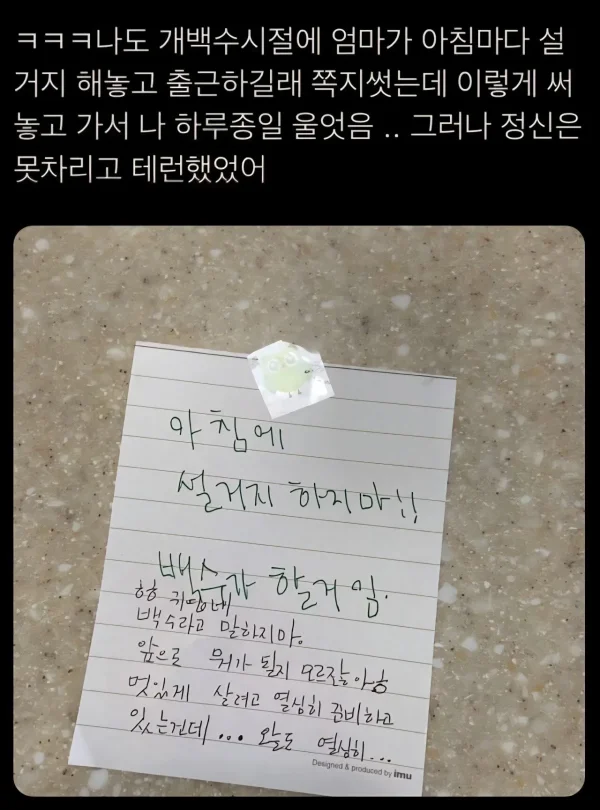 ㅋㅋㅋ나도 개백수시절에 엄마가 아침마다 설
거지 해놓고 출근하길래 쪽지썻는데 이렇게 써
놓고 가서 나 하루종일 울엇음 .. 그러나 정신은
못차리고 테런했었어
아침에
설거지 하지마!!
백수가 할거임.
ㅎㅎ 귀엽네
백수라고 말하지마.
앞으로 뭐가 될지 모르잖아ㅎ
멋있게 살려고 열심히 준비하고
있는건데... 오늘도 열심히...
Designed & produced by imu